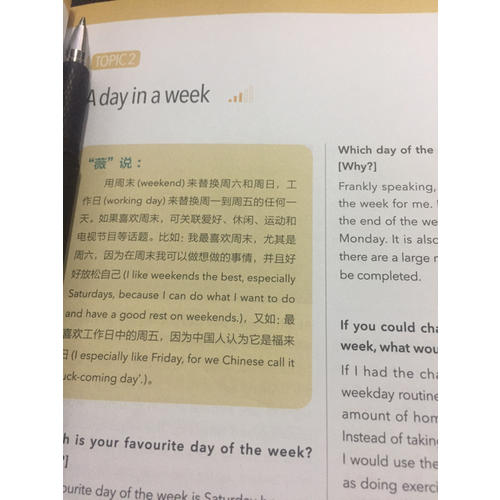 TOPIC 2
A day in a week
“薇”说：
用周末 (weekend) 来替换周六和周日，工
作日 (working day) 来替换周一到周五的任何一
天。如果喜欢周末，可关联爱好、休闲、运动和
电视节目等话题。比如：我最喜欢周末，尤其是
周六，因为在周末我可以做想做的事情，并且好
好放松自己 (I like weekends the best, especially
Saturdays, because I can do what I want to do
and have a good rest on weekends.)，又如：最
喜欢工作日中的周五，因为中国人认为它是福来
日 (I especially like Friday, for we Chinese call it
uck-coming day’.)。
h is your favourite day of the week?
?]
ourite day of the week is Saturday
Which day of the
[Why?]
Frankly speaking,
the week for me.
the end of the we
Monday. It is also
there are a large
be completed.
If you could cha
week, what wou
If I had the cha
weekday routine
amount of hom
Instead of takin
I would use the
as doing exerci